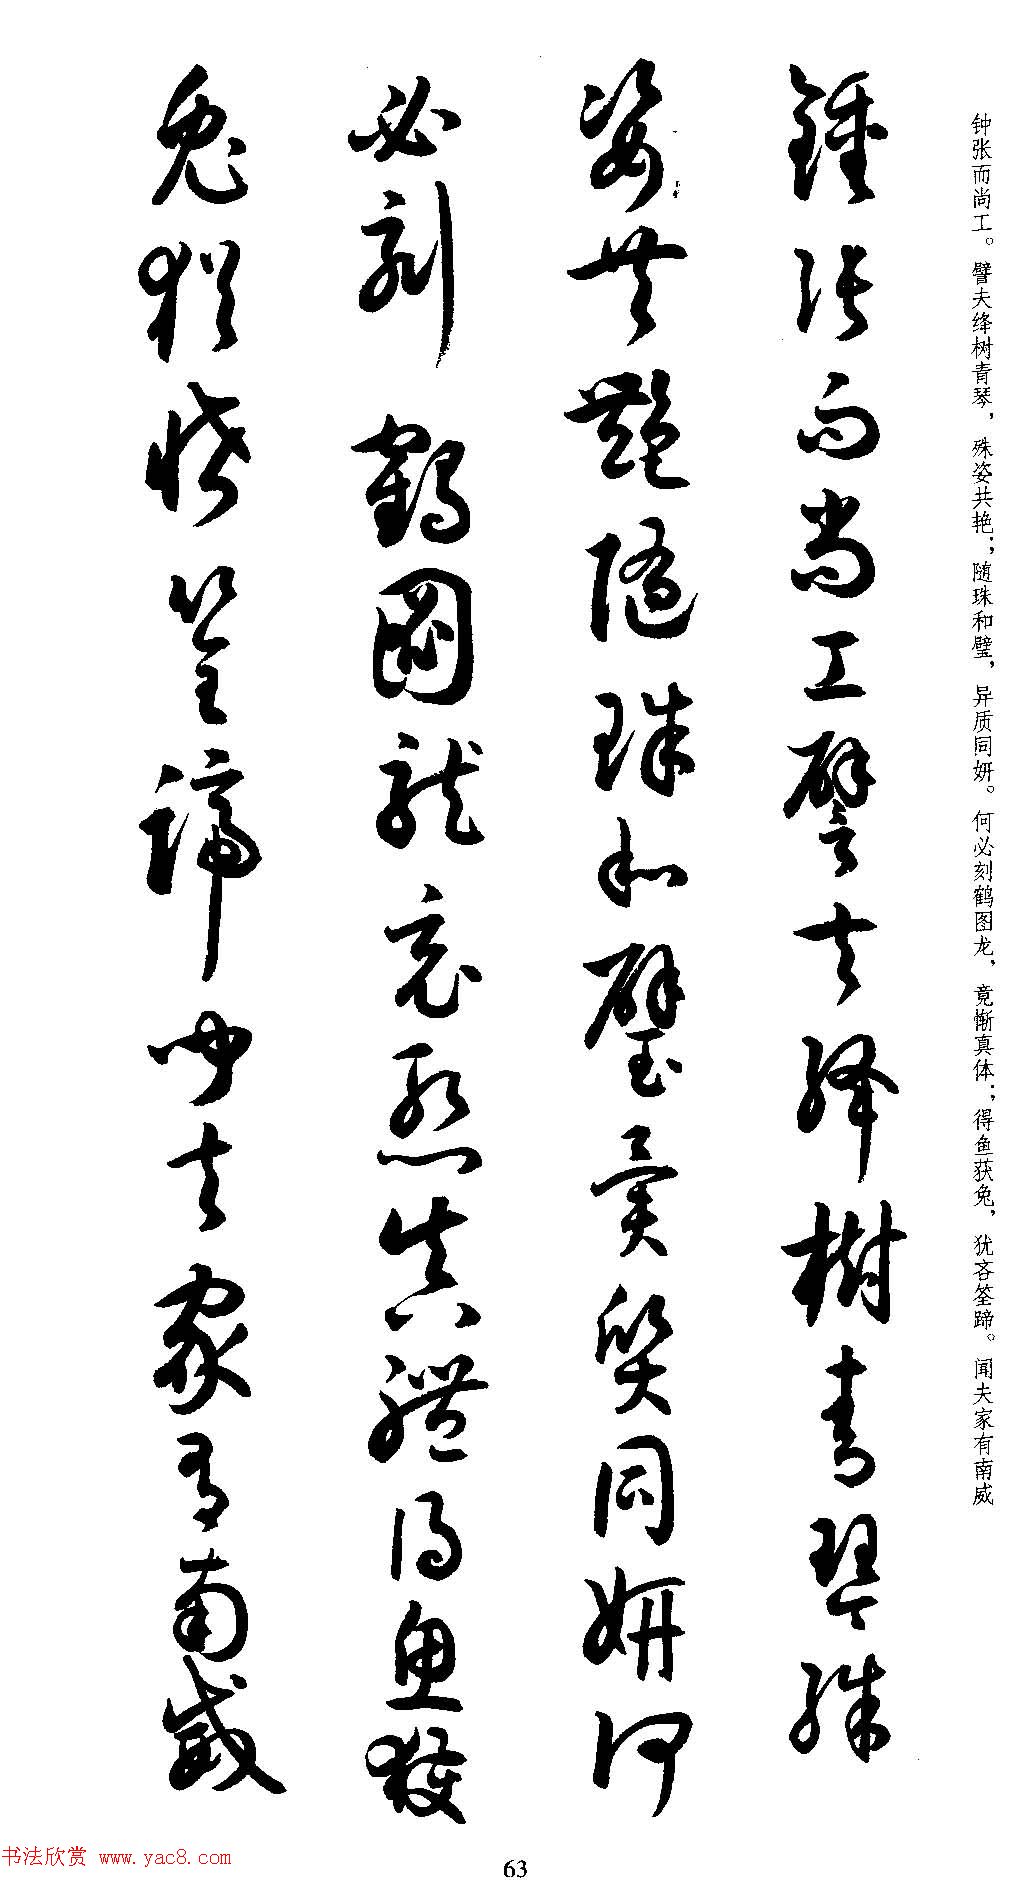 钟张而尚工。譬夫绛树青琴，殊姿共艳；随珠和璧，异质同妍。何必刻鹤图龙，竟惭真体；得鱼获兔，犹吝筌蹄。闻夫家有南威
鍾张而尚工譬夫绛樹青琴殊
姿共艷随珠和璧异質同妍何
必刻鶴圖龍竟慙真體得魚獲
兔猶悋筌蹄闻夫家有南威
书法欣赏 www.yac8.com
63